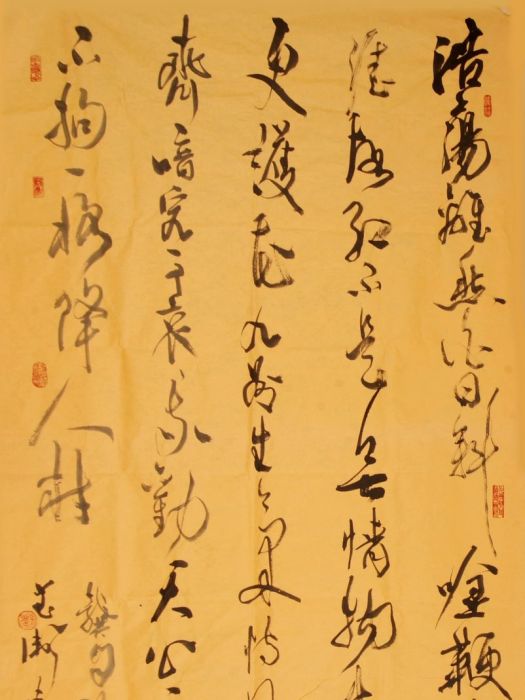 浩蕩離愁白日斜吟鞭
涯落紅不是無情物
更護花九州生氣恃
齊喑究可哀我勸天公
不拘一格降人材
龔自